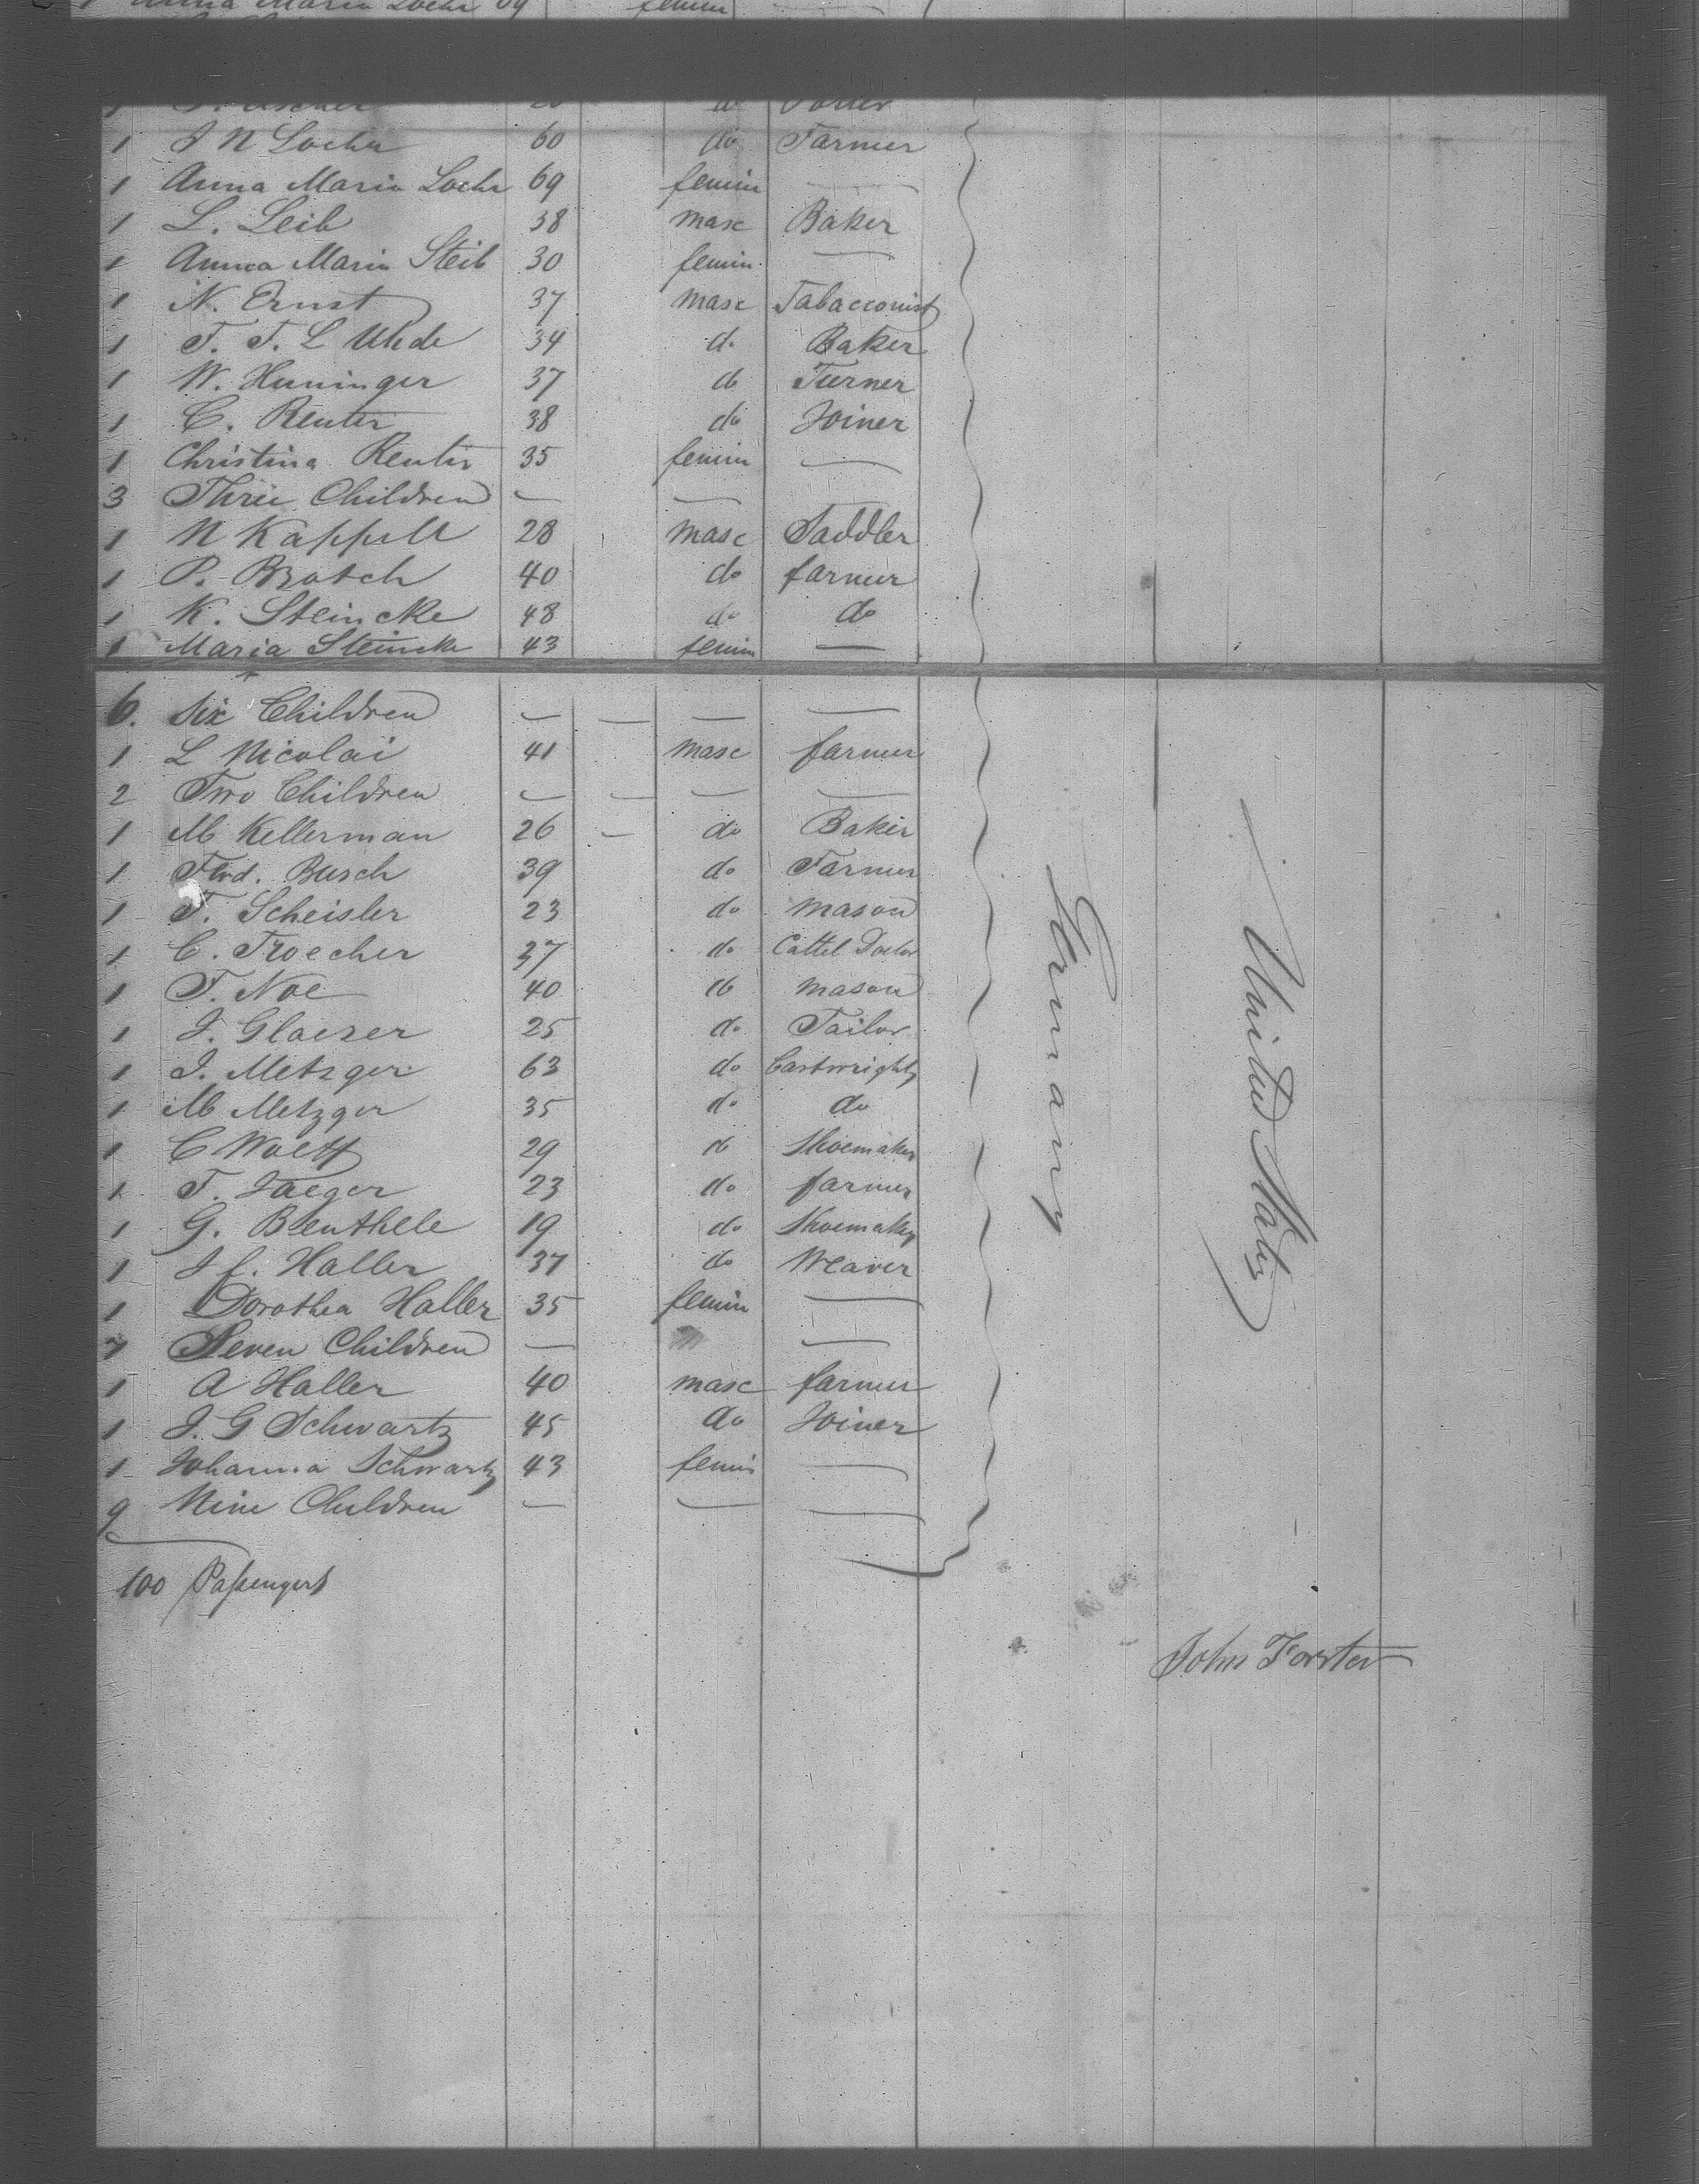 Anna Maria Loehr 69 femin
1 J N Loehr 60 do Farmer
1 Anna Maria Loehr 69 femin —
1 L. Leib 38 masc Baker
1 Annca Maria Steib 30 femin. —
1 N. Ernst 37 masc Tabacconist
1 F. F. L Uhde 34 do Baker
1 W. Huninger 37 do Turner
1 C. Reuter 38 do Joiner
1 Christina Reuter 35 femin —
3 Three Children — —
1 N Kappell 28 masc Saddler
1 P. Brotsch 40 do farmer
1 K. Steincke 48 do do
1 Maria Steincke 43 femin —
6. Six Children — — — —
1 L Nicolai 41 masc farmer
2 Two Children — — — —
1 M Kellerman 26 — do Baker
1 Ferd. Busch 39 do Farmer
1 F. Scheisler 23 do mason
1 C. Troecher 37 do Cattel Doctor
1 F. Noe 40 do mason
1 J. Glaeser 25 do Tailor
1 J. Metzger 63 do Cartwright
1 M Metzger 35 do do
1 C Wolff 29 do Shoemaker
1 F. Jaeger 23 do farmer
1 G. Benthele 19 do Shoemaker
1 J C. Haller 37 do Weaver
1 Dorothea Haller 35 femin —
7 Seven Children — —
1 A Haller 40 masc farmer
1 J. G Schwartz 45 do Joiner
1 Johanna Schwartz 43 femin —
9 Nine Children — — —
100 Passengers
Germany
United States
John Forster